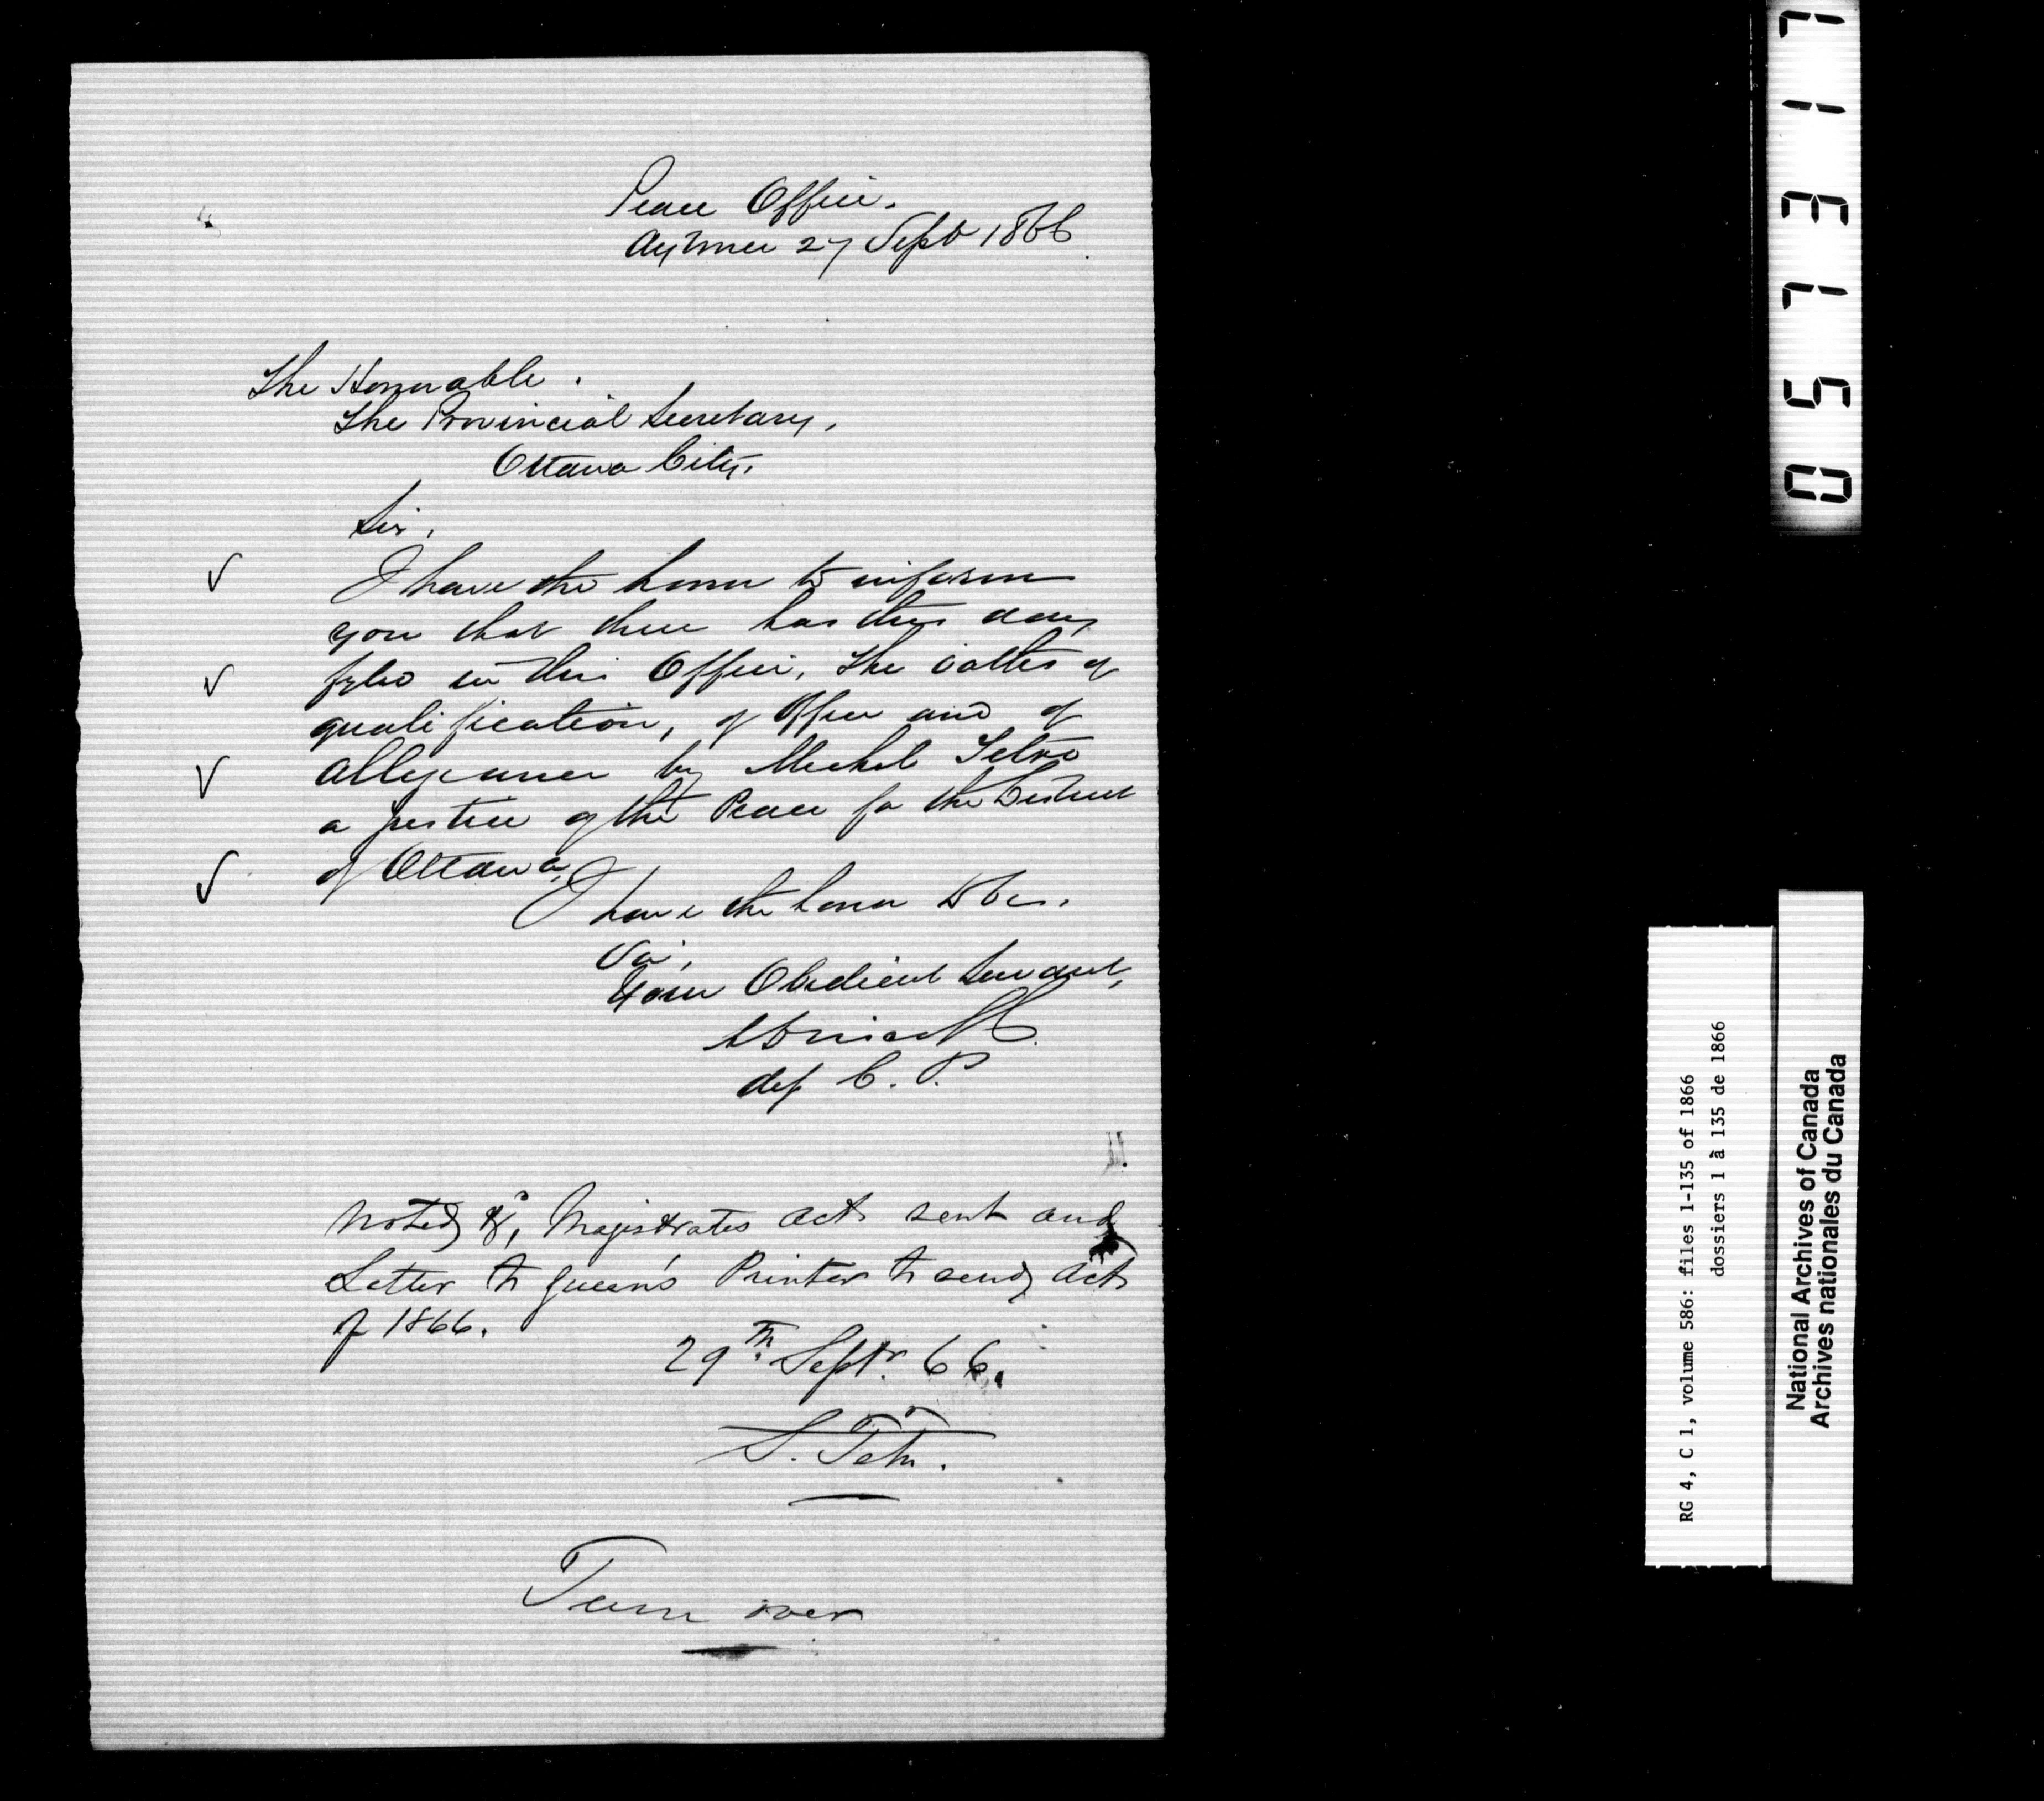 Peace Office.
Aylmer 27 Sept 1866.
The Honorable.
The Provincial Secretary,
Ottawa City.
Sir,
I have the honor to inform
you that there has this day
fyled in this Office, The oathes of
qualification, of Office and of
allegiance by Michel
a justice of the Peace for the District
of Ottawa,
I have the honor to be.
Sir,
Your Obedient Servant,
dep C. P.
Noted &c, Magistrates Acts sent and
Letter to Queen's Printer to send Acts
of 1866.
29th Septr. 66.
Turn over
0571317
RG 4, C 1, volume 586: files 1-135 of 1866
dossiers 1 à 135 de 1866
National Archives of Canada
Archives nationales du Canada